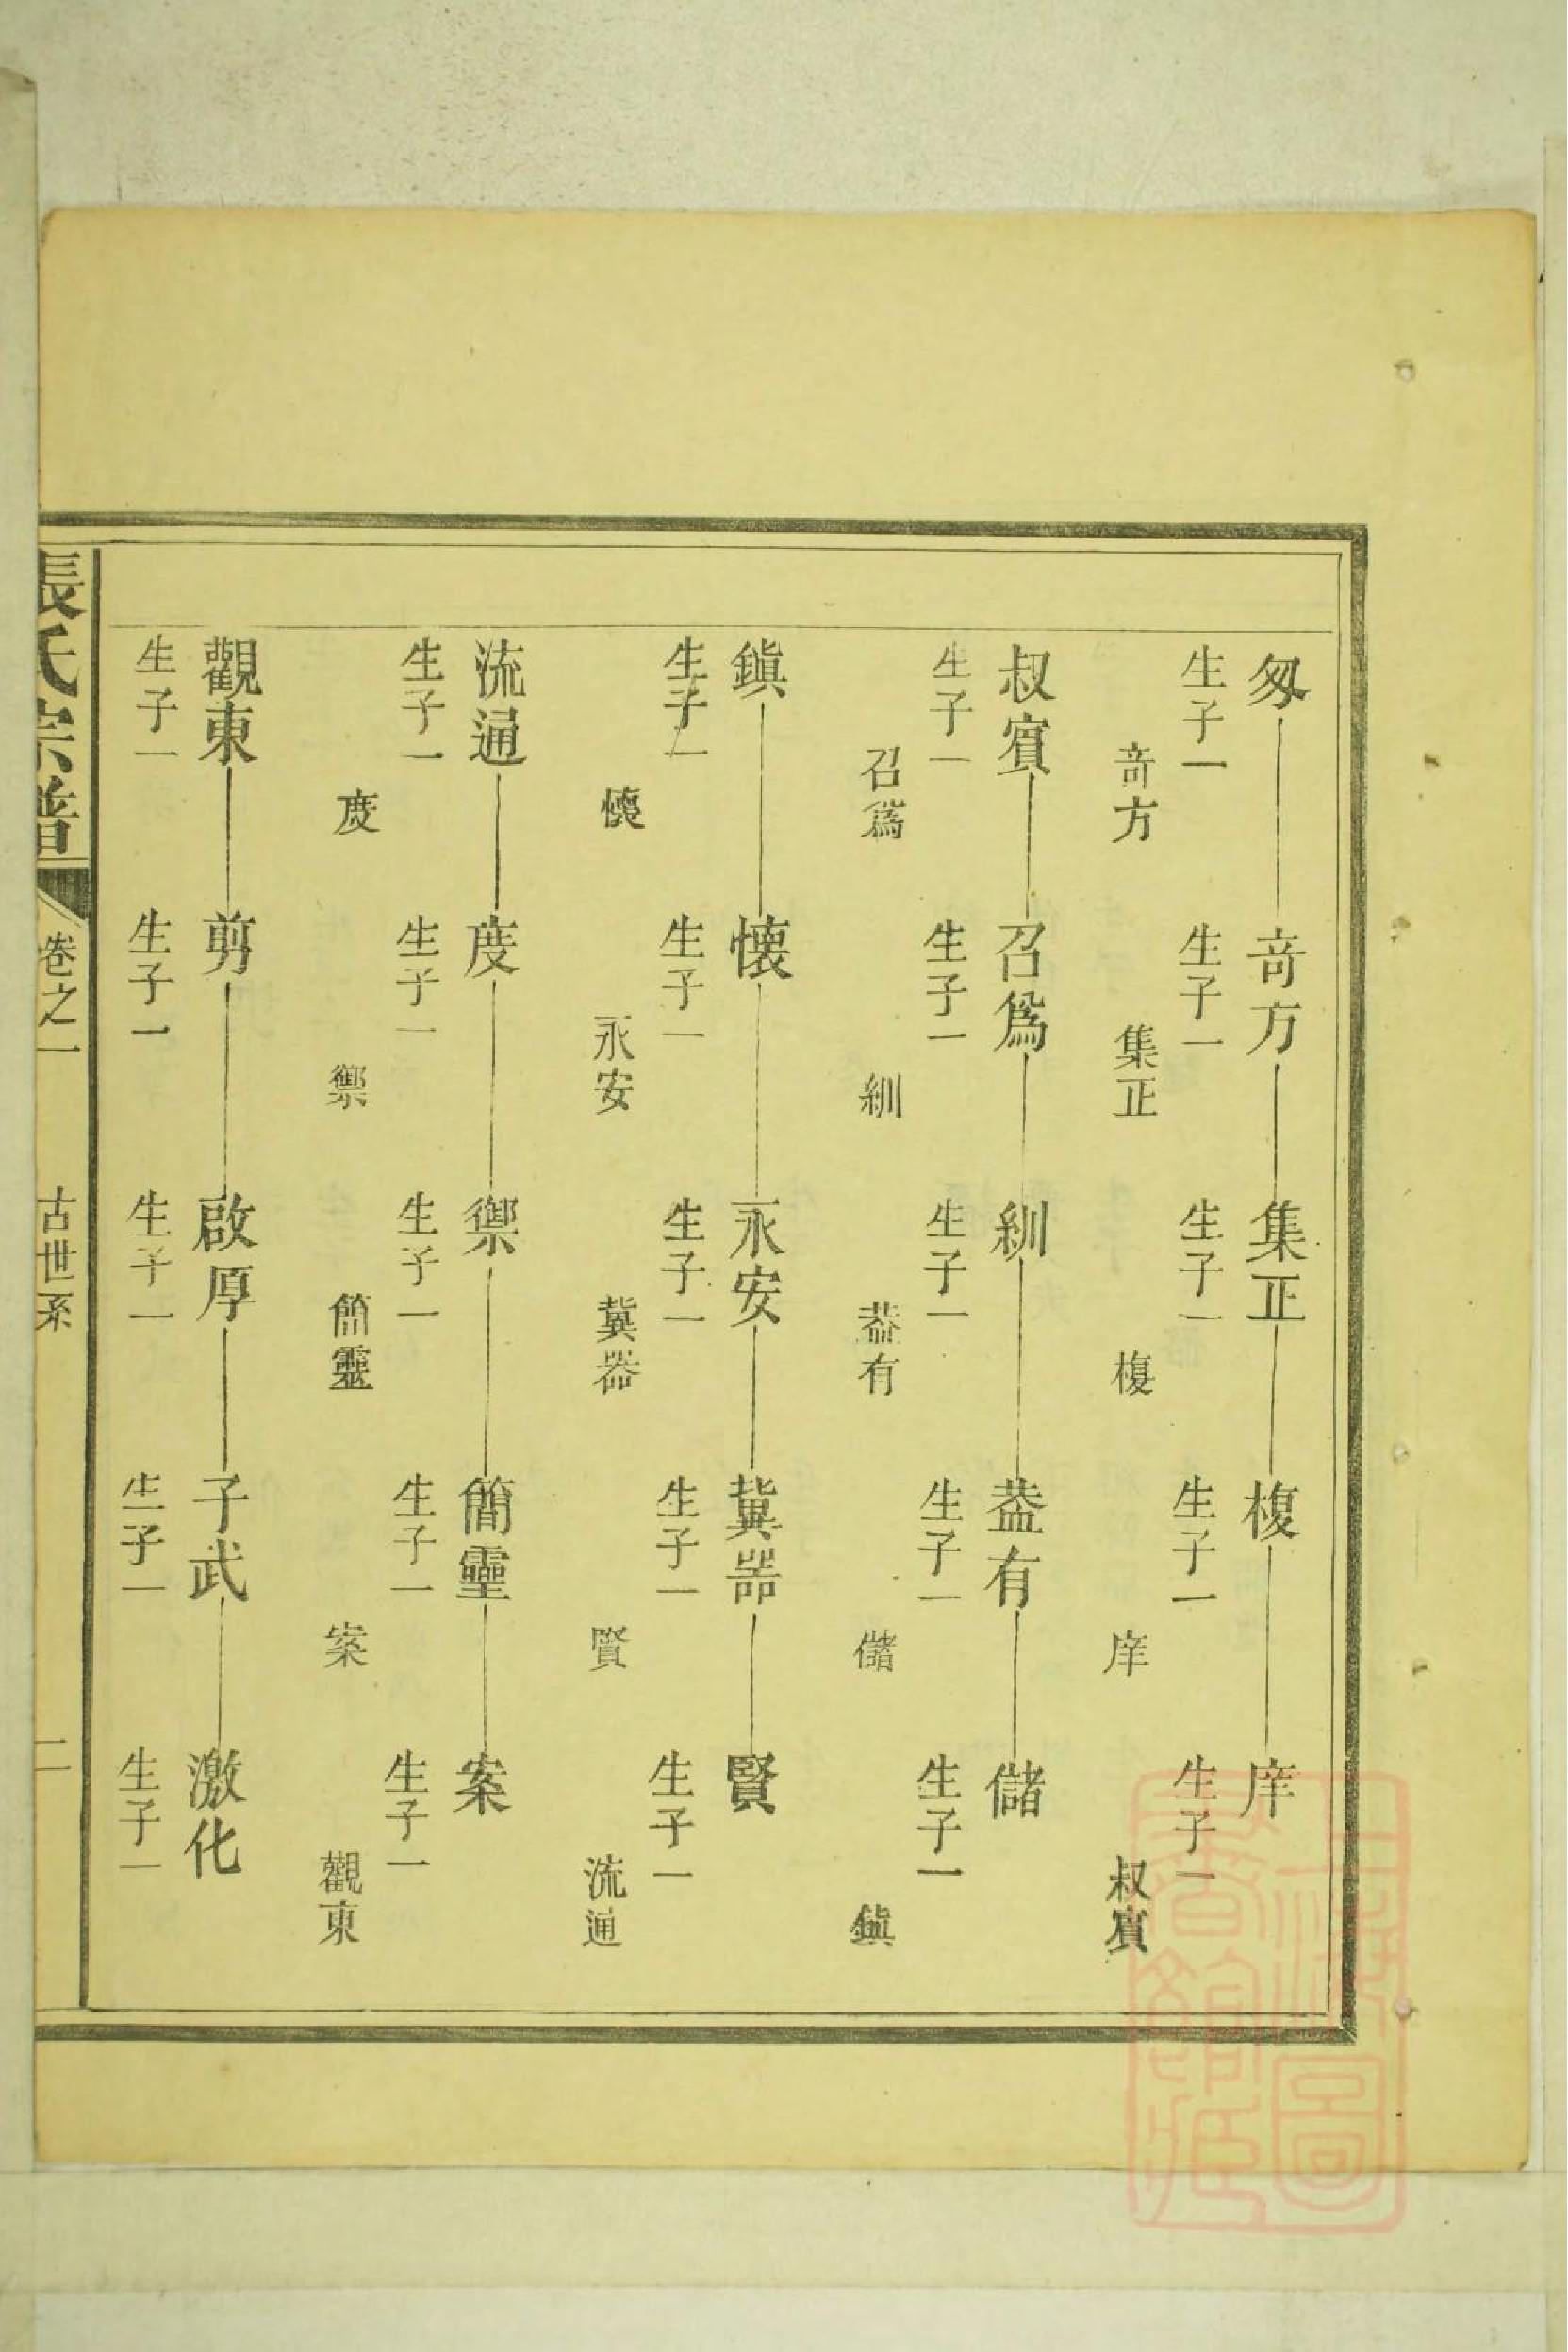 匆 奇方 集正 椱 庠
生子一 生子一 生子一 生子一 生子一
奇方 集正 椱 庠 叔賔
叔賔 召爲 紃 葢有 儲
生子一 生子一 生子一 生子一 生子一
召爲 紃 葢有 儲 鎮
鎮 懐 永安 冀噐 賢
生子一 生子一 生子一 生子一 生子一
懐 永安 冀噐 賢 流通
流通 度 禦 簡靈 案
生子一 生子一 生子一 生子一 生子一
度 禦 簡靈 案 觀東
觀東 剪 啟厚 子武 激化
生子一 生子一 生子一 生子一 生子一
張氏宗譜 卷之一 古世系 二
上海圖書館藏